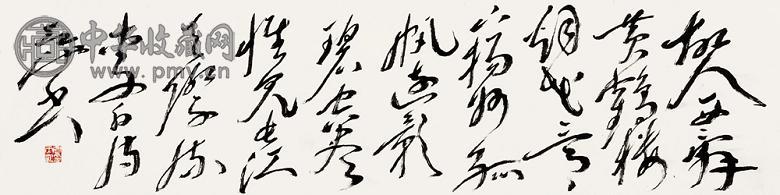 故人西辞
黄鹤楼
烟花三月
下扬州孤
帆远影
碧空尽
惟见长江
天际流
书
中华收藏网